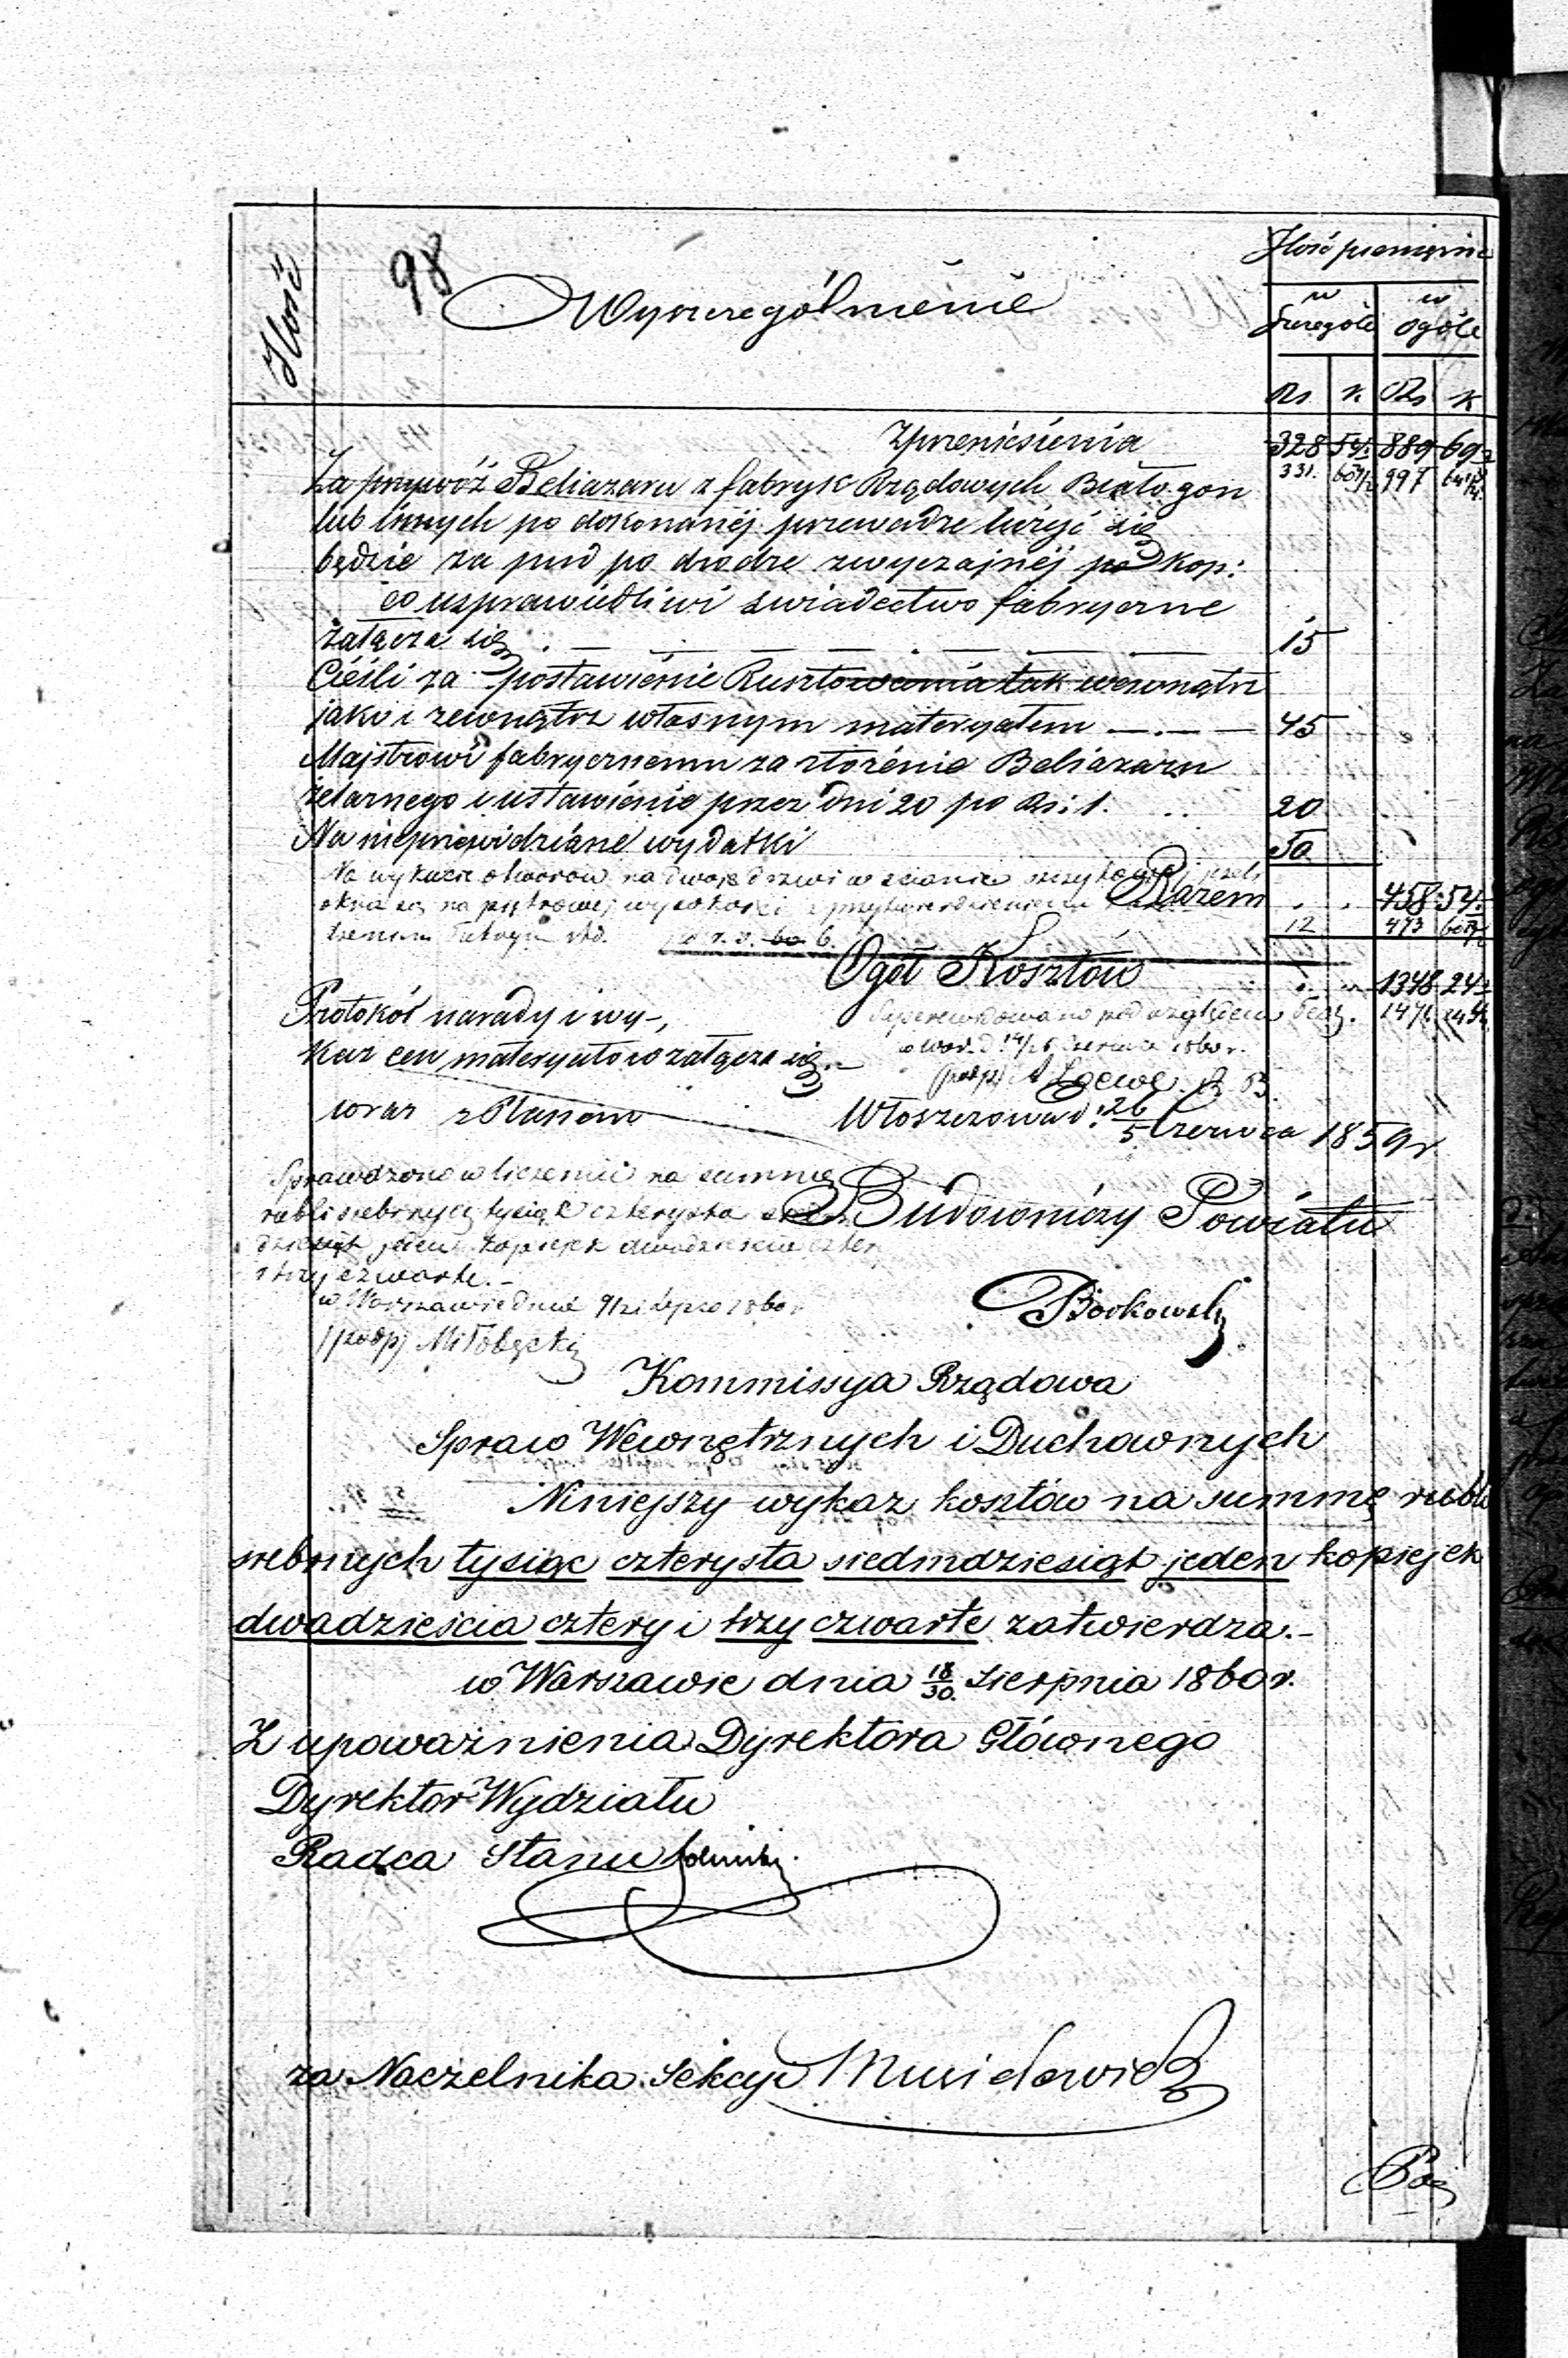 98
Ilość
Wyszczególnienie
Ilość pieniężna
w szczególe
w ogóle
Rs k Rs k
Z przeniesienia 328 54 889 69
331. 60 997
Za przywóz Beliazaru z fabryk Rządowych Białogon
lub innych po dokonanéj przewadze liczyć się
będzie za pud po drodze zwyczajnéj po kop:
co usprawiedliwi świadectwo fabryczne
załącza się 15
Cieśli za postawienie Rusztowania tak wewnątrz
jako i zewnątrz własnym materyałem 45
Majstrowi fabrycznemu za złożenie Beliazaru
żelaznego i ustawienie przez dni 20 po Rs: 1. 20
Na nieprzewidziane wydatki 50
Na wykucie otworów na dwoje drzwi w ścianie szczytowéj jeżeli
okna są na piętrowéj wysokości z przytwierdzeniem
Razem 458 54
r. s. 6. 12 473
Ogół Kosztów 1348 24
1471
Protokół narady i wy-,
kaz cen materyałów załącza się.
wraz z Planem
w War. d. 14/26 Czerwca 1860 r.
(podp) A Loewe. R. B.
Włoszczowa d: 26/5 Czerwca 1859 r
Sprawdzono w liczeniu na summę
rubli srebrnych tysiąc czterysta
dziesiąt jeden kopiejek dwadzieścia czter
i trzy czwarte.-
w Warszawie dnia 9/21 Sierpnia 1860 r
(podp) Miłobęcki
Budowniczy Powiatu
Borkowski
Kommissya Rządowa
Spraw Wewnętrznych i Duchownych
Niniejszy wykaz kosztów na summę rubli
srebrnych tysiąc czterysta siedmdziesiąt jeden kopiejek
dwadzieścia cztery i trzy czwarte zatwierdza.-
w Warszawie dnia 18/30. Sierpnia 1860 r.
Z upoważnienia Dyrektora Głównego
Dyrektor Wydziału
Radca Stanu
za Naczelnika Sekcyi